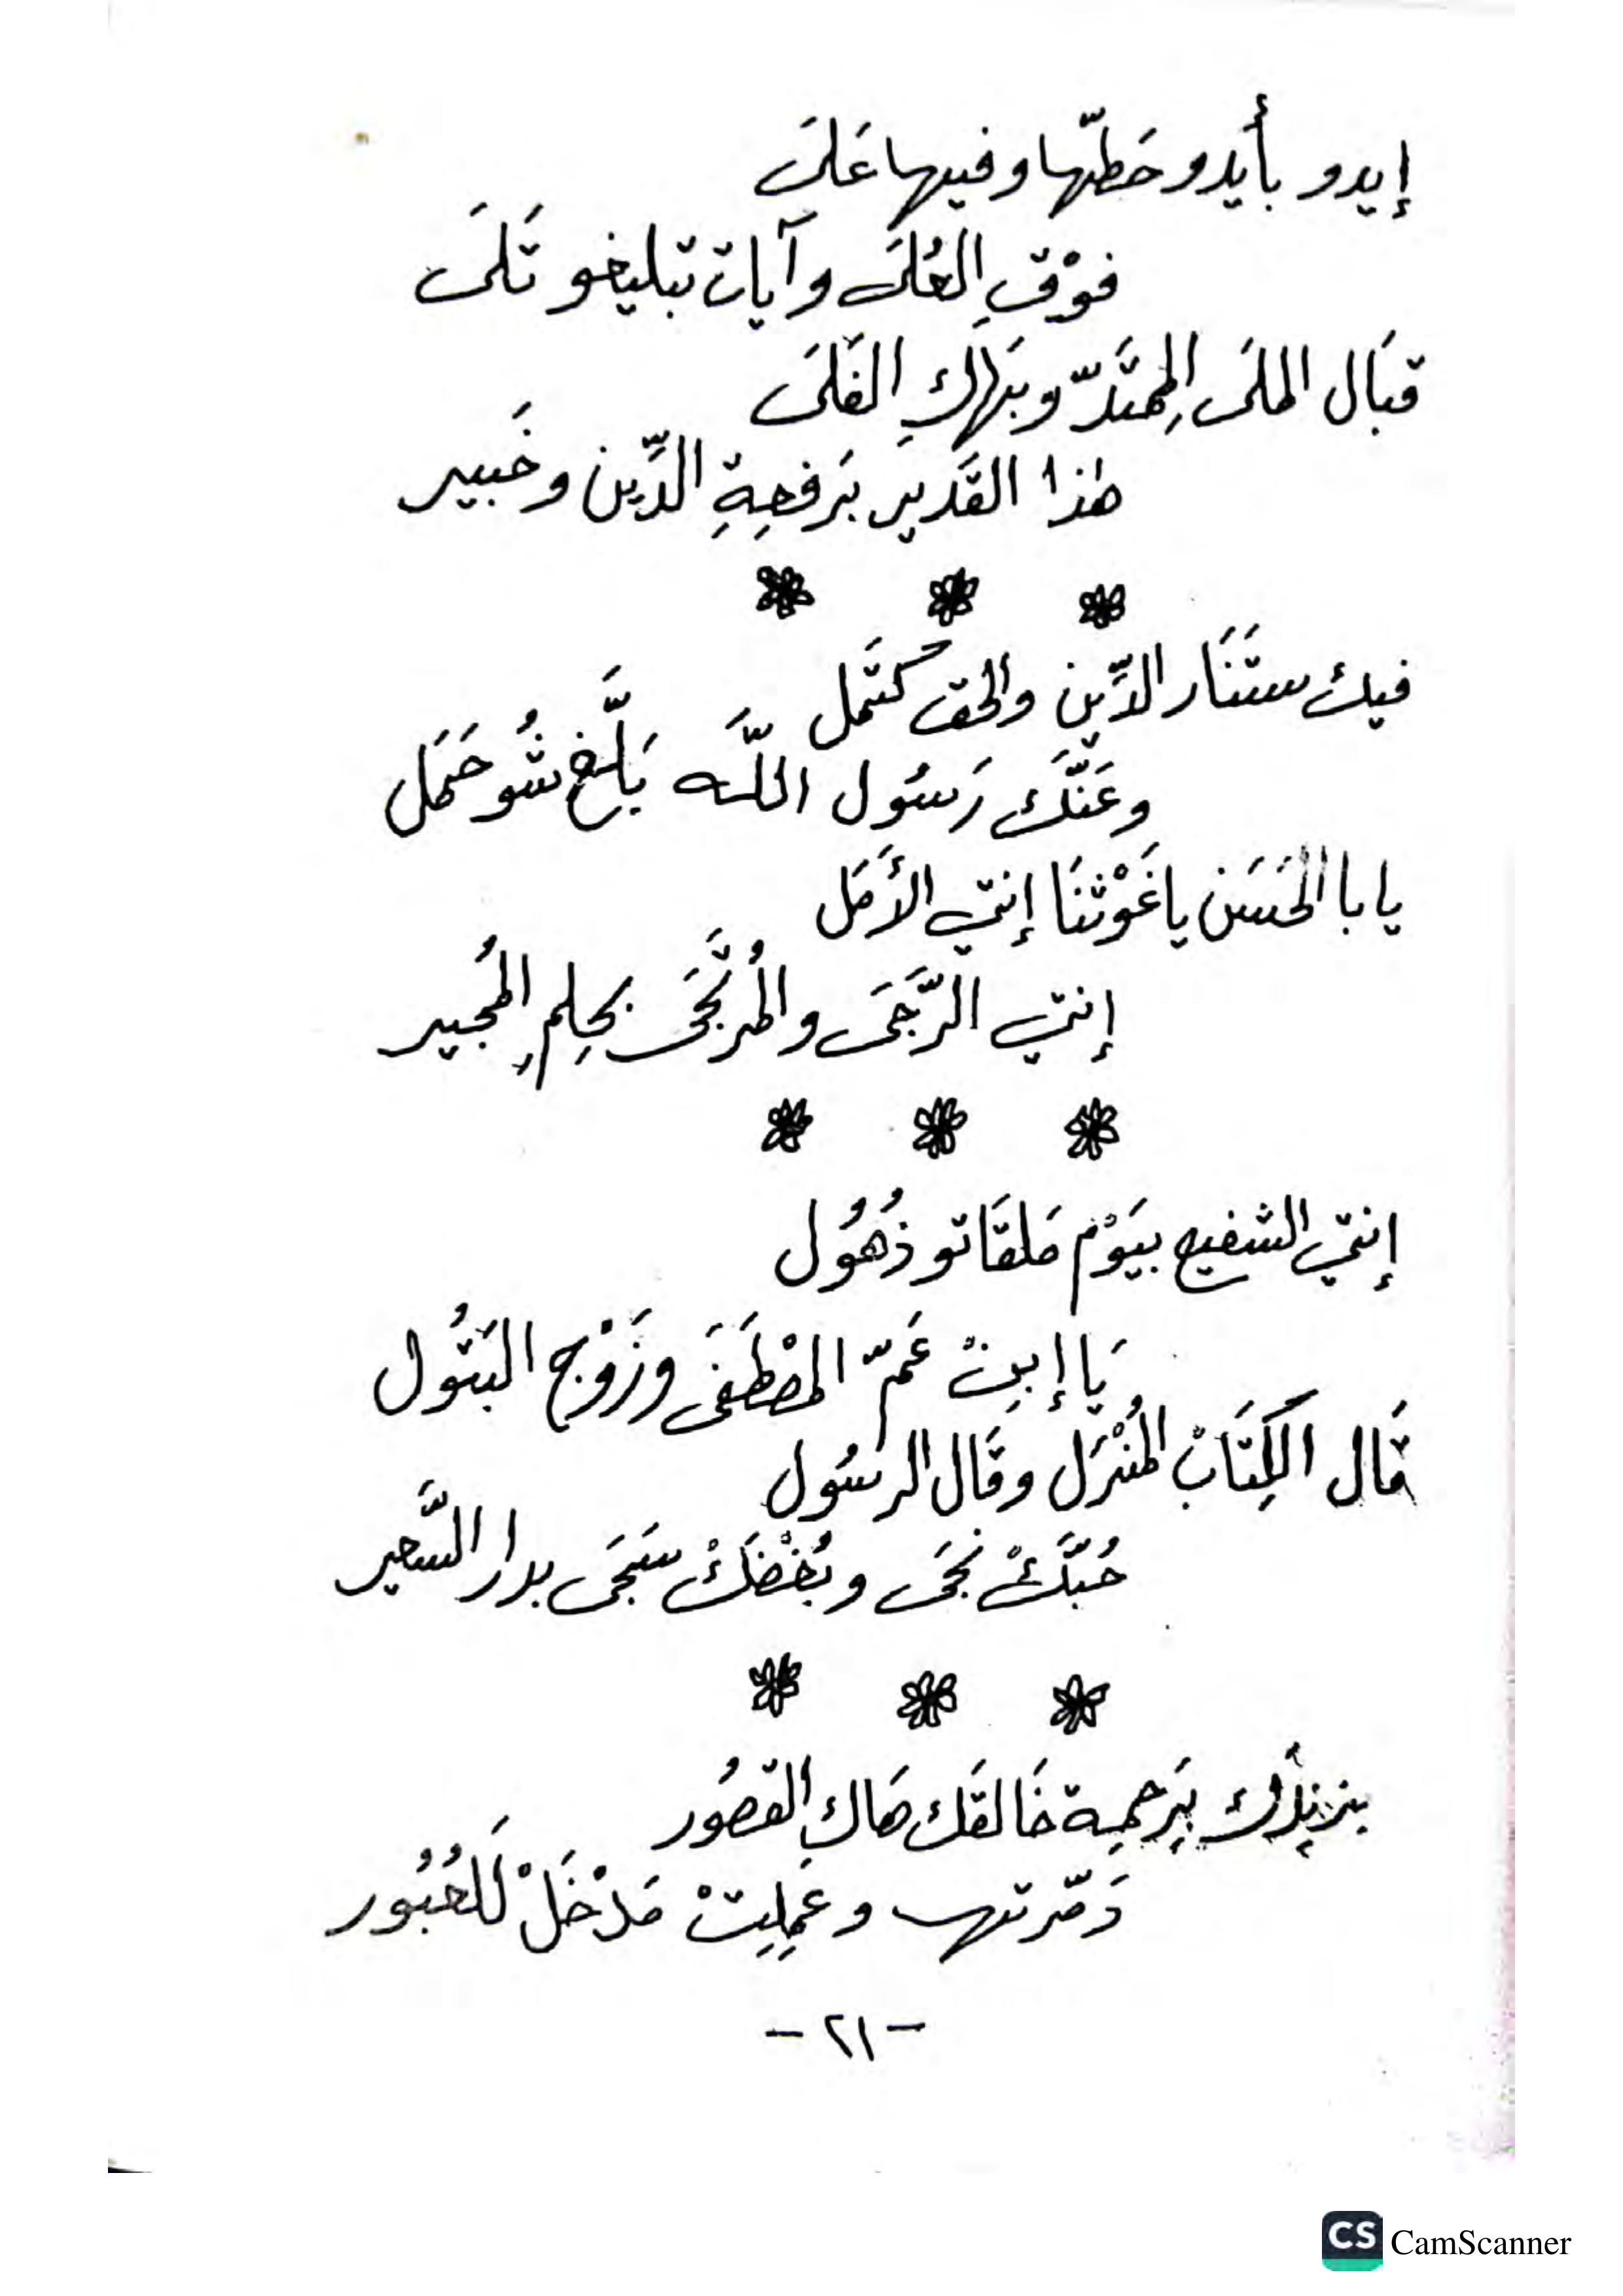 إيدو بأيدو حَطّها وفيها عَلىَ
فوْق العُلىَ وآيات تبليغو تَلىَ
قبَال الملىَ المِمتَدّ وبَهَاكِ الفَلىَ
هٰذا القَدير بَرفعِةِ الدِّين وخَبير
فيك ستَنَار الدِّين والحق كتَمل
وعَنَّكَ رَسُول اللَّه بَلَّغ شُو حَمَل
يا با الحَسَن يا غَوْثنَا إنتِ الأَمَل
إنتِ الرَّجَىَ والمُرتَجَى بحِلمِ المُجير
إنتِ الشفيع بيَوْم مَلقَاتو ذُهُول
يَا إبِنْ عَمّ المصْطَفَى وزَوْج البَتُول
قَال الكِتَابْ المُنْزَل وقَال الرسُول
حُبَّكْ نجَى وبُغْضَكْ سَجَى بدار السَّعير
بزندك بِرَحمِة خَالقَك هَاك القصُور
دَمّرتها وعَمِلِتْ مَدْخَلْ لَلعُبُور
- ٢١ -
CS CamScanner